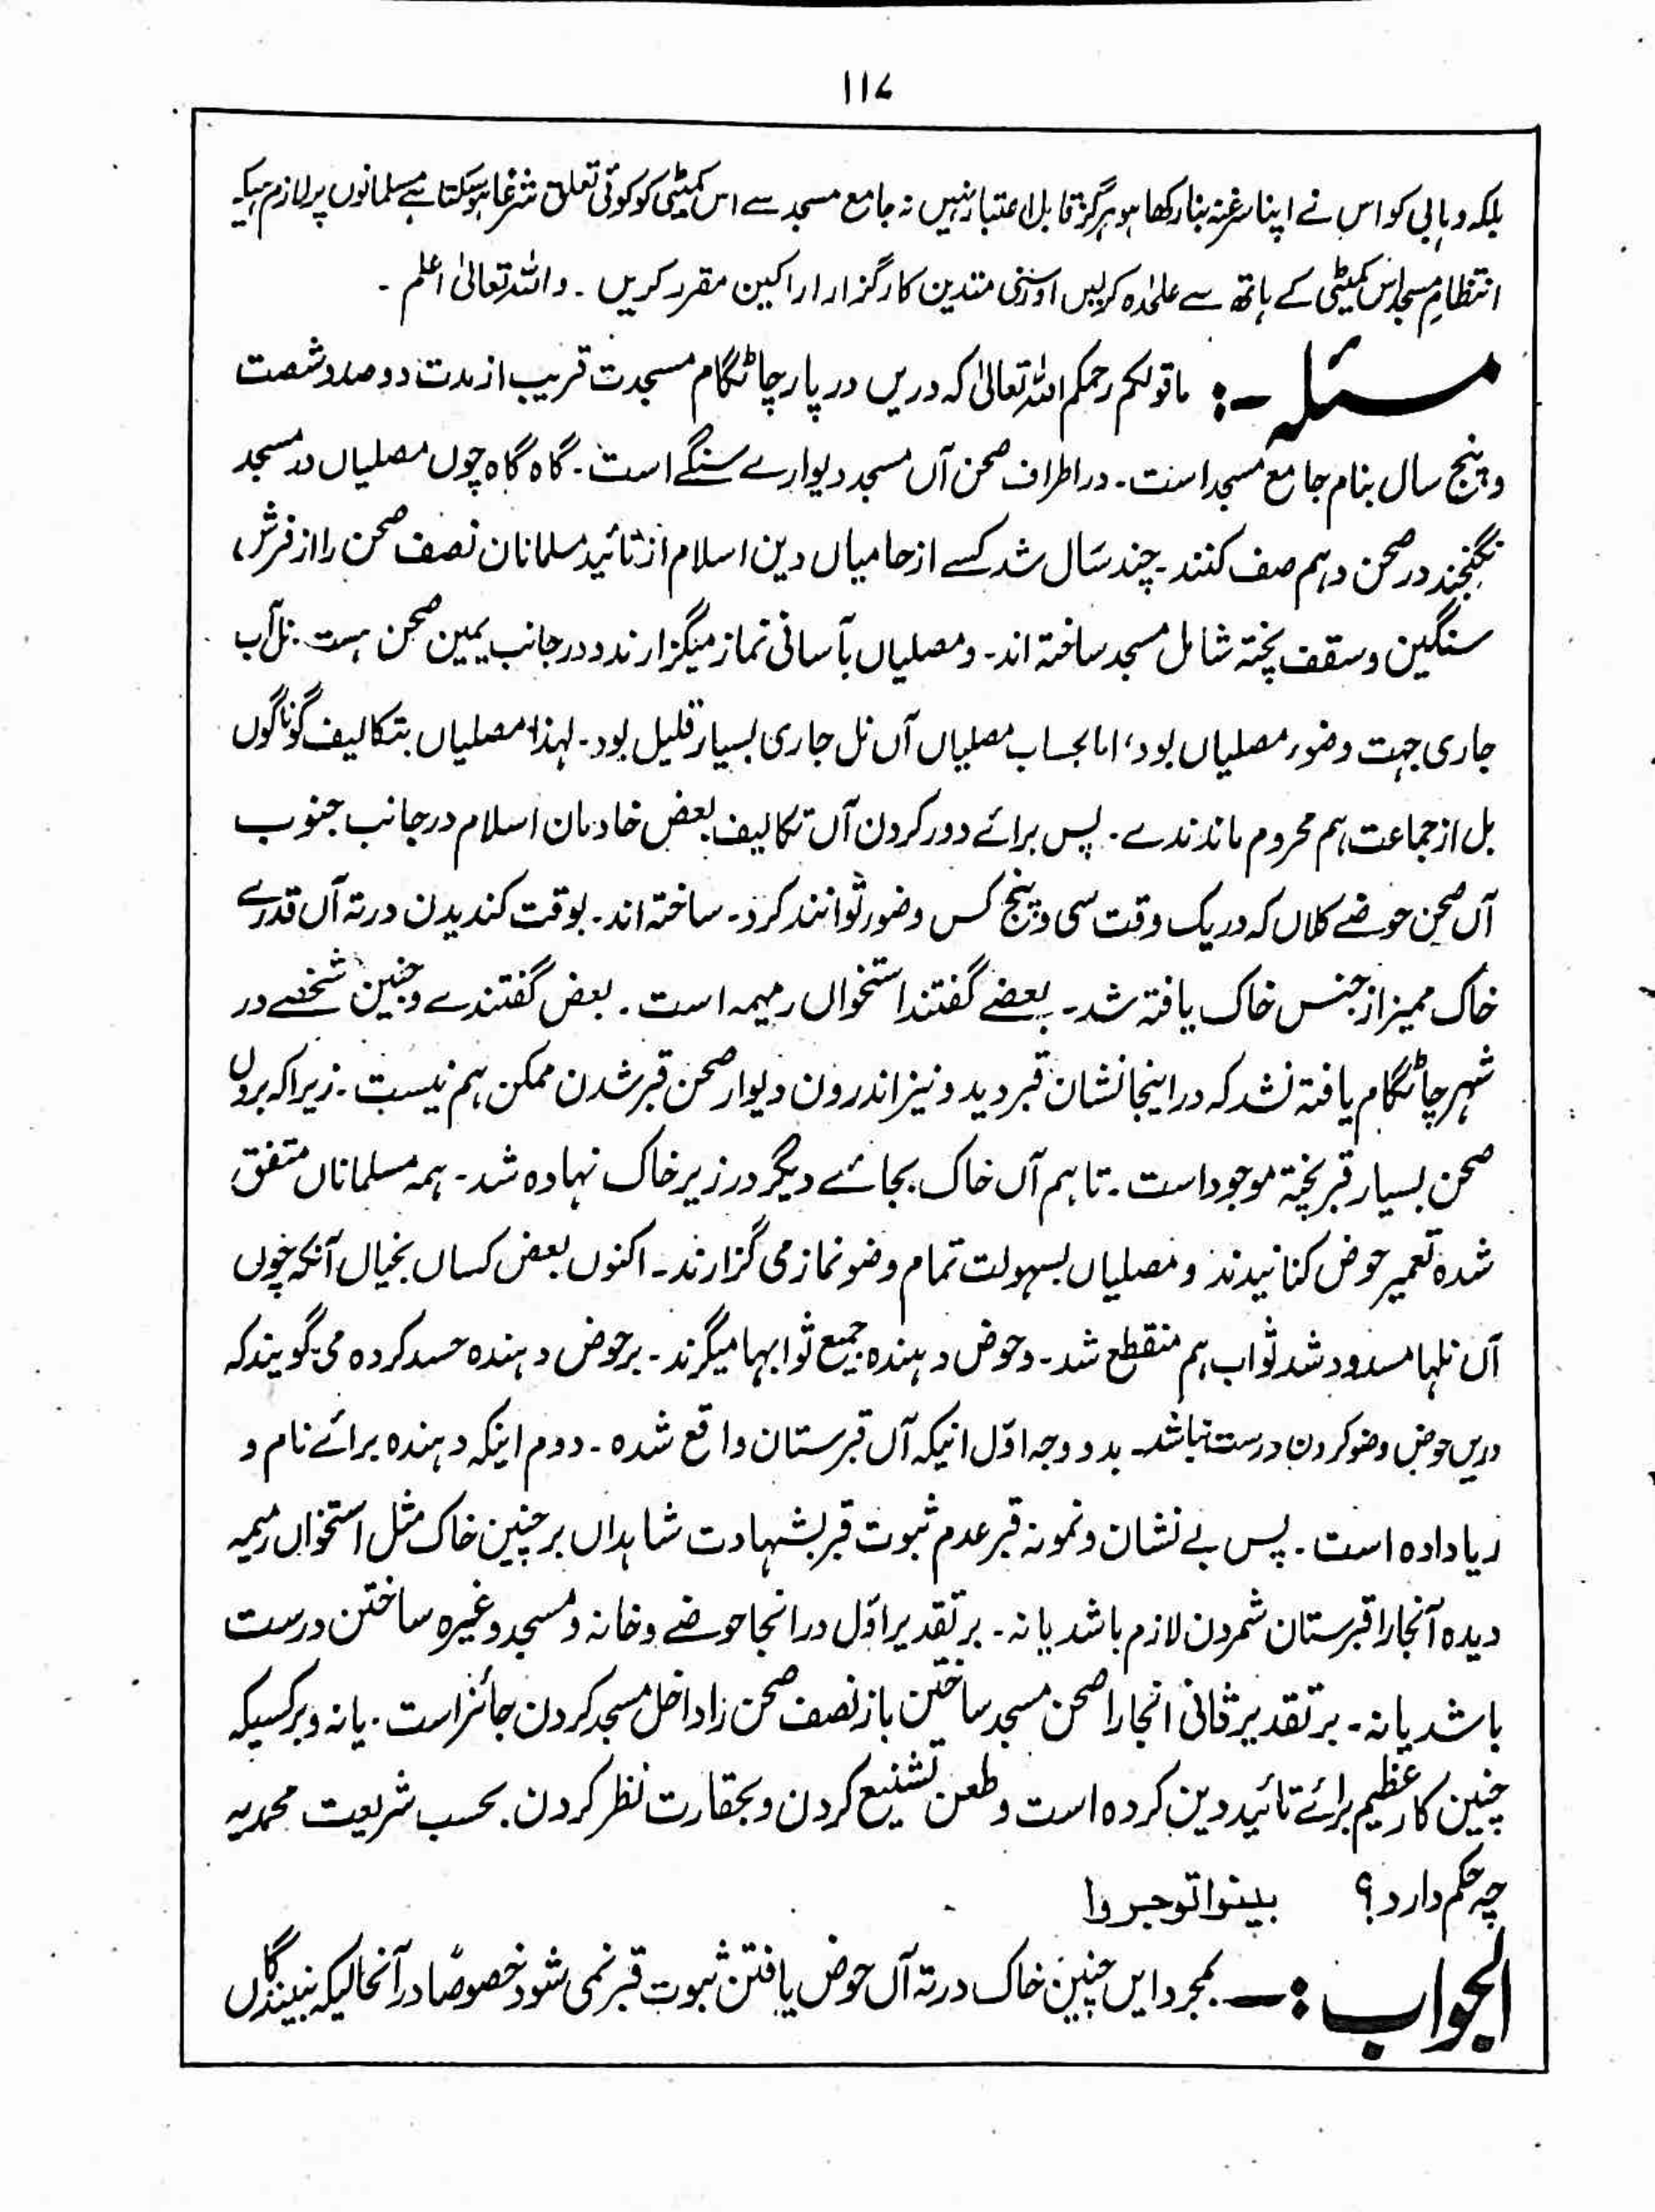 ۱۱۷
بلکہ وہابی کو اس نے اپنا سرغنہ بنا رکھا ہو ہرگز قابل اعتبار نہیں نہ جامع مسجد سے اس کمیٹی کو کوئی تعلق شرعًا ہو سکتا ہے مسلمانوں پر لازم ہیکہ
انتظامِ مسجد اس کمیٹی کے ہاتھ سے علٰحدہ کرلیں اور سنی متدین کارگزار اراکین مقرر کریں ۔ واللہ تعالیٰ اعلم ۔
مسئلہ :۔ ماقولکم رحمکم اللہ تعالیٰ کہ دریں در پار چاٹگام مسجدت قریب از مدت دو صد و شصت
و پنج سال بنام جامع مسجد است ۔ در اطراف صحن آں مسجد دیوارے سنگے است ۔ گاہ گاہ چوں مصلیاں در مسجد
نگنجند در صحن دہم صف کنند ۔ چند سال شد کسے از حامیاں دین اسلام از تائید مسلمانان نصف صحن را از فرش ،
سنگین و سقف پختہ شامل مسجد ساختہ اند ۔ و مصلیاں بآسانی نماز میگزارند و در جانب یمین صحن ہست ۔ نل آب
جاری جہت وضوء مصلیاں بود ، اما بحساب مصلیاں آں نل جاری بسیار قلیل بود ۔ لہذا مصلیاں بتکالیف گوناگوں
بل از جماعت ہم محروم ماندندے ۔ پس برائے دور کردن آں تکالیف بعض خادمان اسلام در جانب جنوب
آں صحن حوضے کلاں کہ در یک وقت سی و پنج کس وضوء توانند کرد ۔ ساختہ اند ۔ بوقت کندیدن در تہ آں قدرے
خاک ممیز از جنس خاک یافتہ شد ۔ بعضے گفتند استخواں رمیمہ است ۔ بعض گفتندے و چنین شخصے در
شہر چاٹگام یافتہ نشد کہ در اینجا نشان قبر دید و نیز اندرون دیوار صحن قبر شدن ممکن ہم نیست ۔ زیرا کہ بروں
صحن بسیار قبر پختہ موجود است ۔ تاہم آں خاک بجائے دیگر در زیر خاک نہادہ شد ۔ ہمہ مسلماناں متفق
شدہ تعمیر حوض کنانیدند و مصلیاں بسہولت تمام وضو نماز می گزارند ۔ اکنوں بعض کساں بخیال آنکہ چوں
آں نلہا مسدود شد ثواب ہم منقطع شد ۔ و حوض دہندہ جمیع ثوابہا میگرند ۔ بر حوض دہندہ حسد کردہ می گویند کہ
دریں حوض وضو کردن درست نباشد ۔ بدو وجہ اوّل انیکہ آں قبرستان واقع شدہ ۔ دوم اینکہ دہندہ برائے نام و
ریا دادہ است ۔ پس بے نشان و نمونہ قبر عدم ثبوت قبر بشہادت شاہداں بر چنین خاک مثل استخواں رمیمہ
دیدہ آنجا را قبرستان شمردن لازم باشد یا نہ ۔ بر تقدیر اوّل در انجا حوضے و خانہ و مسجد وغیرہ ساختن درست
باشد یا نہ ۔ بر تقدیر ثانی انجا را صحن مسجد ساختن باز نصف صحن را داخل مسجد کردن جائز است ۔ یا نہ و بر کسیکہ
چنین کار عظیم برائے تائید دین کردہ است و طعن تشنیع کردن و بحقارت نظر کردن ۔ بحسب شریعت محمدیہ
چہ حکم دارد ؟ بینوا توجروا
الجواب :۔ بمجرد ایں چنین خاک در تہ آں حوض یافتن ثبوت قبر نمی شود خصوصًا در آنحالیکہ بینندگاں